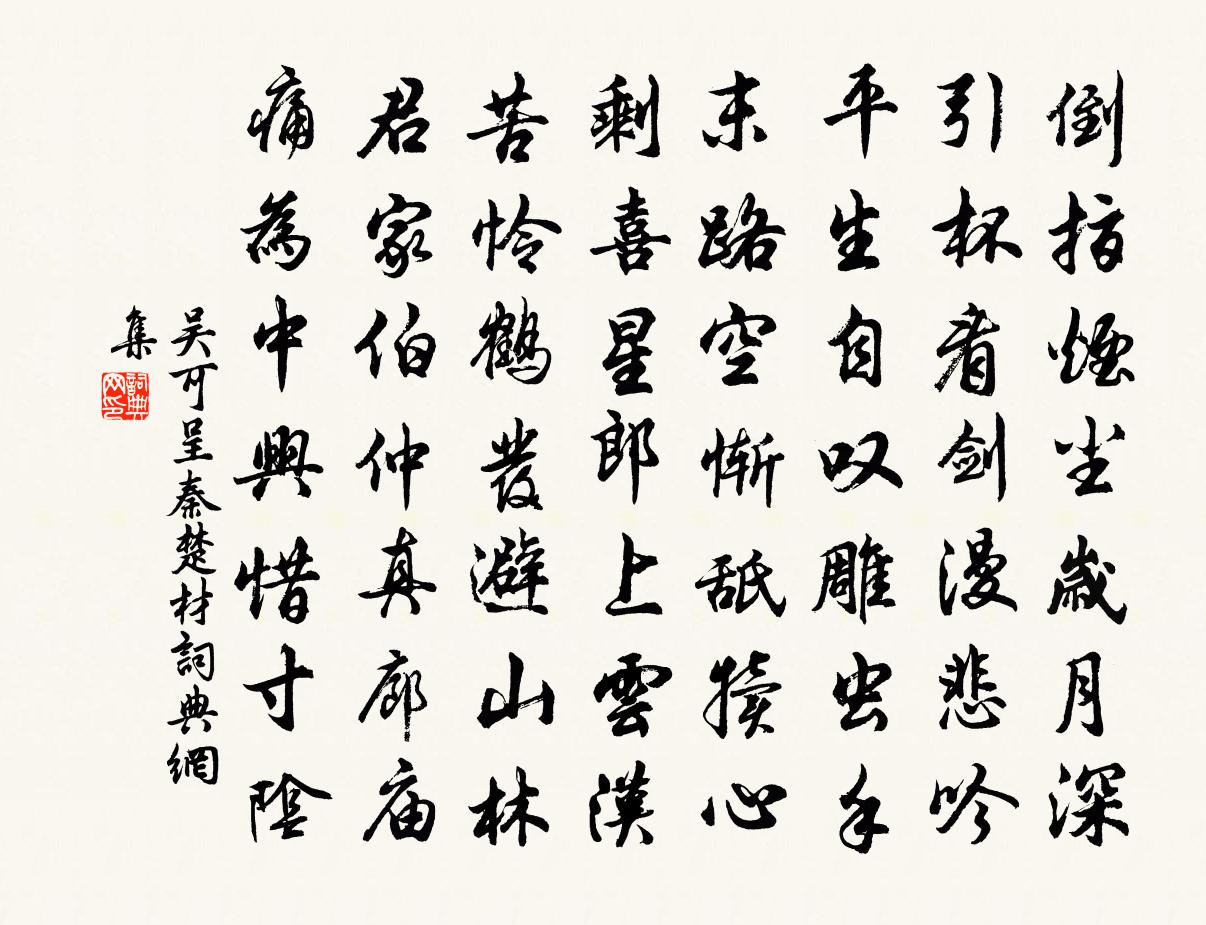 倒指煙尘歳月深
引杯看剑漫悲吟
平生自叹雕虫手
末路空惭舐犊心
剩喜星郎上雲漢
苦怜鶴發避山林
君家伯仲真廊庙
痛為中興惜寸陰
吴可呈秦楚材詞典網
集
詞典
网印